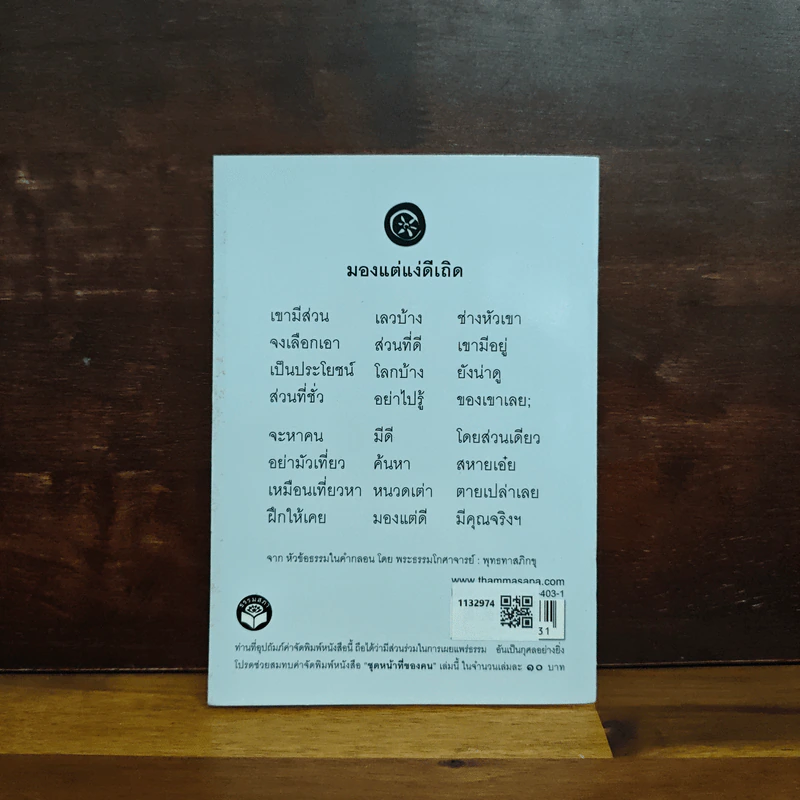 มองแต่แง่ดีเถิด
เขามีส่วน เลวบ้าง ช่างหัวเขา
จงเลือกเอา ส่วนที่ดี เขามีอยู่
เป็นประโยชน์ โลกบ้าง ยังน่าดู
ส่วนที่ชั่ว อย่าไปรู้ ของเขาเลย;
จะหาคน มีดี โดยส่วนเดียว
อย่ามัวเที่ยว ค้นหา สหายเอ๋ย
เหมือนเที่ยวหา หนวดเต่า ตายเปล่าเลย
ฝึกให้เคย มองแต่ดี มีคุณจริงฯ
จาก หัวข้อธรรมในคำกลอน โดย พระธรรมโกศาจารย์ : พุทธทาสภิกขุ
www.thammasapa.com
403-1
1132974
31
ธรรมสภา
ท่านที่อุปถัมภ์ค่าจัดพิมพ์หนังสือนี้ ถือได้ว่ามีส่วนร่วมในการเผยแพร่ธรรม อันเป็นกุศลอย่างยิ่ง
โปรดช่วยสมทบค่าจัดพิมพ์หนังสือ "ชุดหน้าที่ของคน" เล่มนี้ ในจำนวนเล่มละ ๑๐ บาท